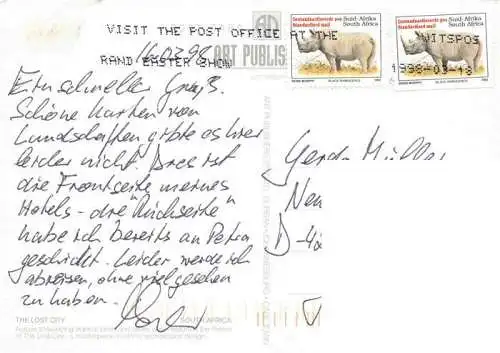 VISIT THE POST OFFICE AT THE
RAND EASTER SHOW
WITSPOS
1998-03-18
ART PUBLIS
Standardised mail
Suid-Afrika
South Africa
BLACK RHINOCEROS
Standardised mail
Suid-Afrika
South Africa
BLACK RHINOCEROS
16.03.98
Ein schneller Gruß.
Schöne Karten von
Landschaften gibt es hier
leider nicht. Dies ist
die Frontseite meines
Hotels - die "Rückseite"
habe ich bereits an Petra
geschickt. Leider werde ich
abreisen, ohne viel gesehen
zu haben.
Gerda Müller
Neu
D-
THE LOST CITY
SOUTH AFRICA